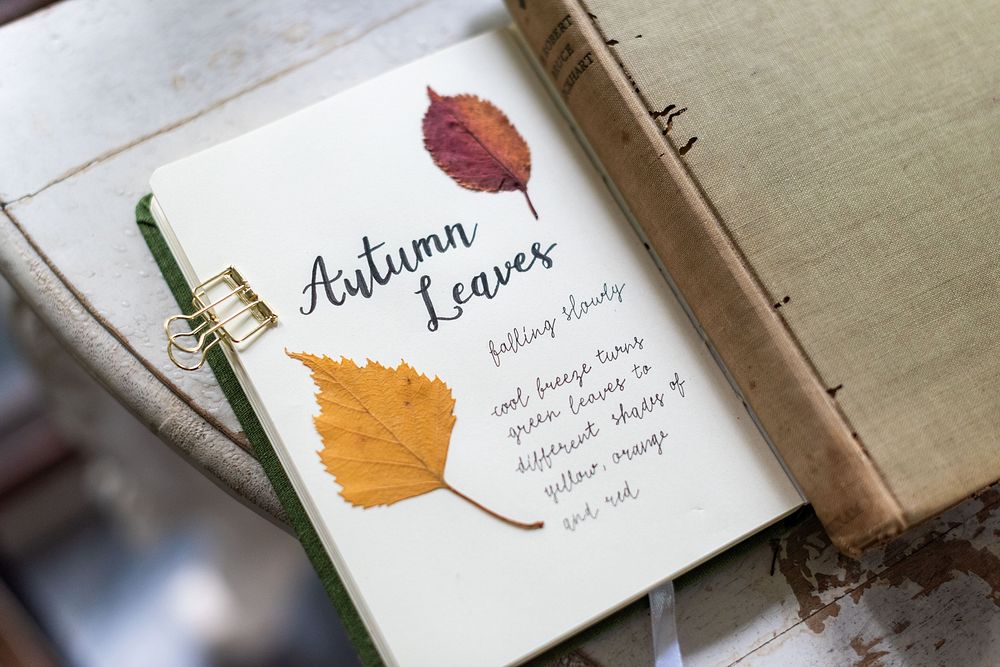 Autumn
Leaves
falling slowly
cool breeze turns
green leaves to
different shades of
yellow, orange
and red
ROBERT
BRUCE
LOCKHART